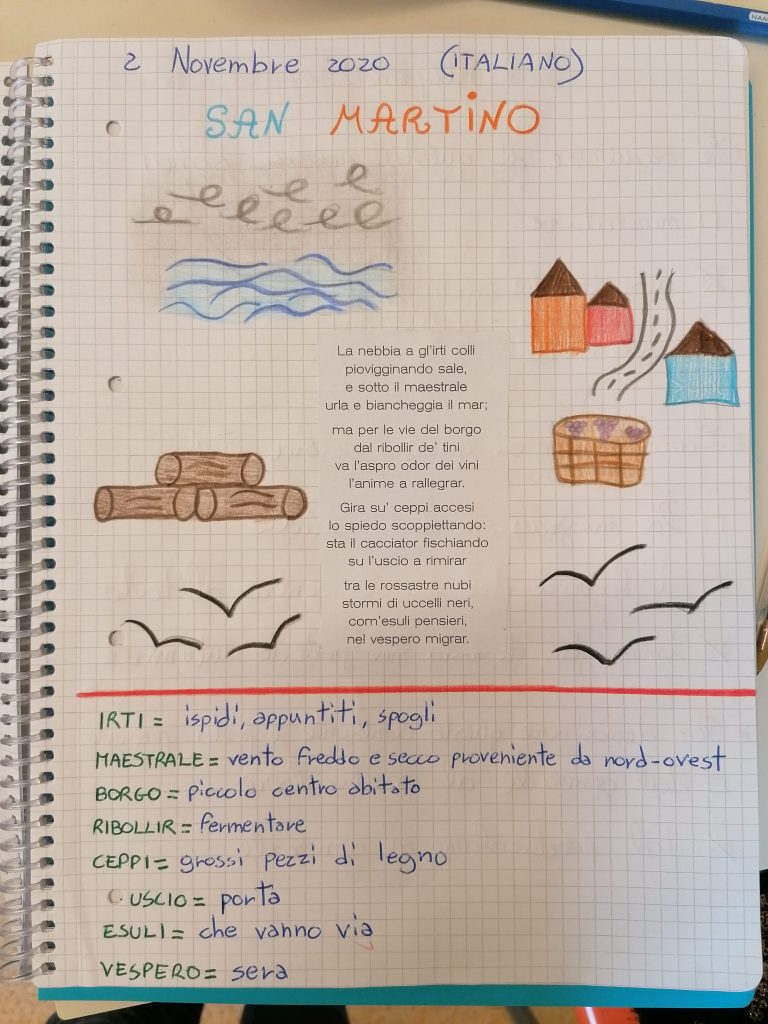 2 Novembre 2020 (ITALIANO)
SAN MARTINO
La nebbia a gl'irti colli
piovigginando sale,
e sotto il maestrale
urla e biancheggia il mar;
ma per le vie del borgo
dal ribollir de' tini
va l'aspro odor dei vini
l'anime a rallegrar.
Gira su' ceppi accesi
lo spiedo scoppiettando:
sta il cacciator fischiando
su l'uscio a rimirar
tra le rossastre nubi
stormi di uccelli neri,
com'esuli pensieri,
nel vespero migrar.
IRTI = ispidi, appuntiti, spogli
MAESTRALE = vento freddo e secco proveniente da nord-ovest
BORGO = piccolo centro abitato
RIBOLLIR = fermentare
CEPPI = grossi pezzi di legno
USCIO = porta
ESULI = che vanno via
VESPERO = sera